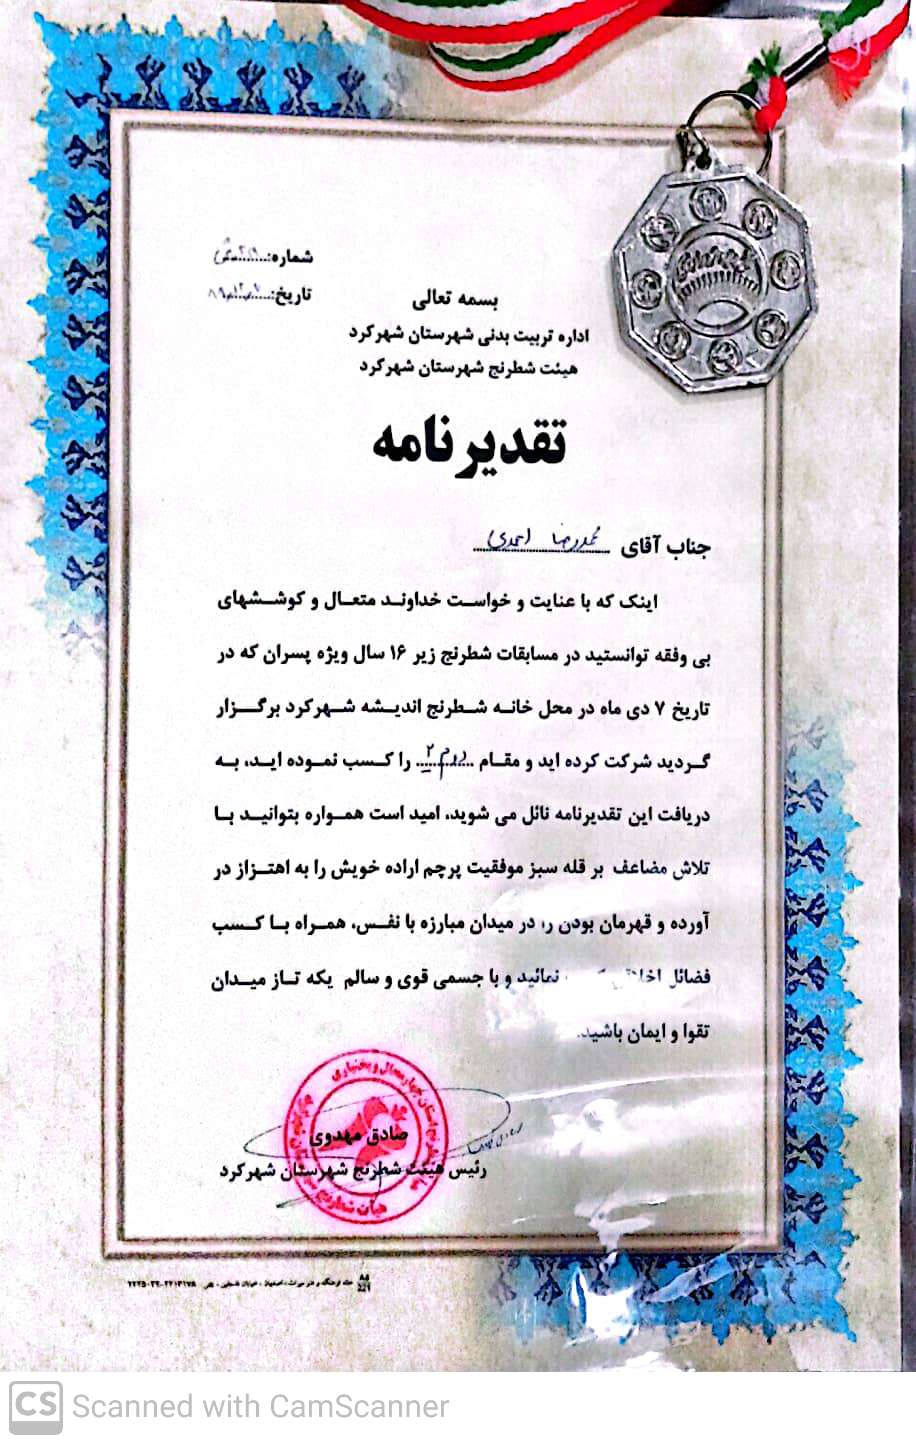 شماره:
تاریخ: ۸۹/۱۲/۷
بسمه تعالی
اداره تربیت بدنی شهرستان شهرکرد
هیئت شطرنج شهرستان شهرکرد
تقدیرنامه
جناب آقای محمدرضا احمدی
اینک که با عنایت و خواست خداوند متعال و کوششهای
بی وقفه توانستید در مسابقات شطرنج زیر ۱۶ سال ویژه پسران که در
تاریخ ۷ دی ماه در محل خانه شطرنج اندیشه شهرکرد برگزار
گردید شرکت کرده اید و مقام دوم ۲ را کسب نموده اید، به
دریافت این تقدیرنامه نائل می شوید، امید است همواره بتوانید با
تلاش مضاعف بر قله سبز موفقیت پرچم اراده خویش را به اهتزاز در
آورده و قهرمان بودن را در میدان مبارزه با نفس، همراه با کسب
فضائل نمائید و با جسمی قوی و سالم یکه تاز میدان
تقوا و ایمان باشید.
صادق مهدوی
رئیس هیئت شطرنج شهرستان شهرکرد
CS Scanned with CamScanner